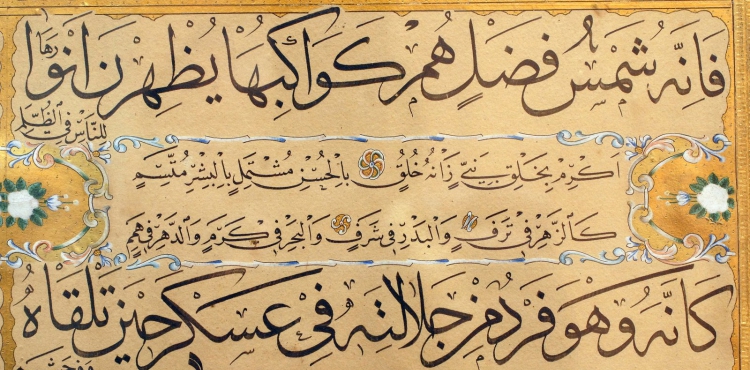 فَإِنَّهُ شَمْسُ فَضْلٍ هُمْ كَوَاكِبُهَا يُظْهِرْنَ أَنْوَارَهَا
لِلنَّاسِ فِي الظُّلَمِ
اَكْرِمْ بِخَلْقِ نَبِيٍّ زَانَهُ خُلُقٌ بِالْحُسْنِ مُشْتَمِلٍ بِالْبِشْرِ مُتَّسِمِ
كَالزَّهْرِ فِي تَرَفٍ وَالْبَدْرِ فِي شَرَفٍ وَالْبَحْرِ فِي كَرَمٍ وَالدَّهْرِ فِي هِمَمِ
كَأَنَّهُ وَهُوَ فَرْدٌ مِنْ جَلَالَتِهِ فِي عَسْكَرٍ حِينَ تَلْقَاهُ